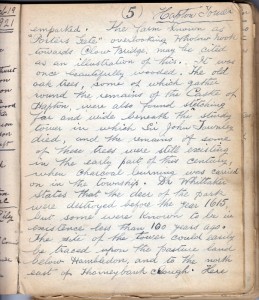 (5) Hapton Tower
emparked. The farm known as
"Porters Gate" overlooking
towards Clow Bridge, may be cited
as an illustration of this. It was
once beautifully wooded. The old
oak trees, some of which gather
round the remains of the Castle of
Hapton, were also found stretching
far and wide beneath the sturdy
tower in which Sir John Towneley
died, and the remains of some
of these trees were still existing
in the early part of this century,
when charcoal burning was carried
on in the township. Dr Whittaker
states that the deer of the park
were destroyed before the year 1615,
but some were known to be in
existence less than 100 years ago.
The site of the tower could easily
be traced upon the pasture land
below Hambledon, and to the north
east of Thorneybank Clough. Here